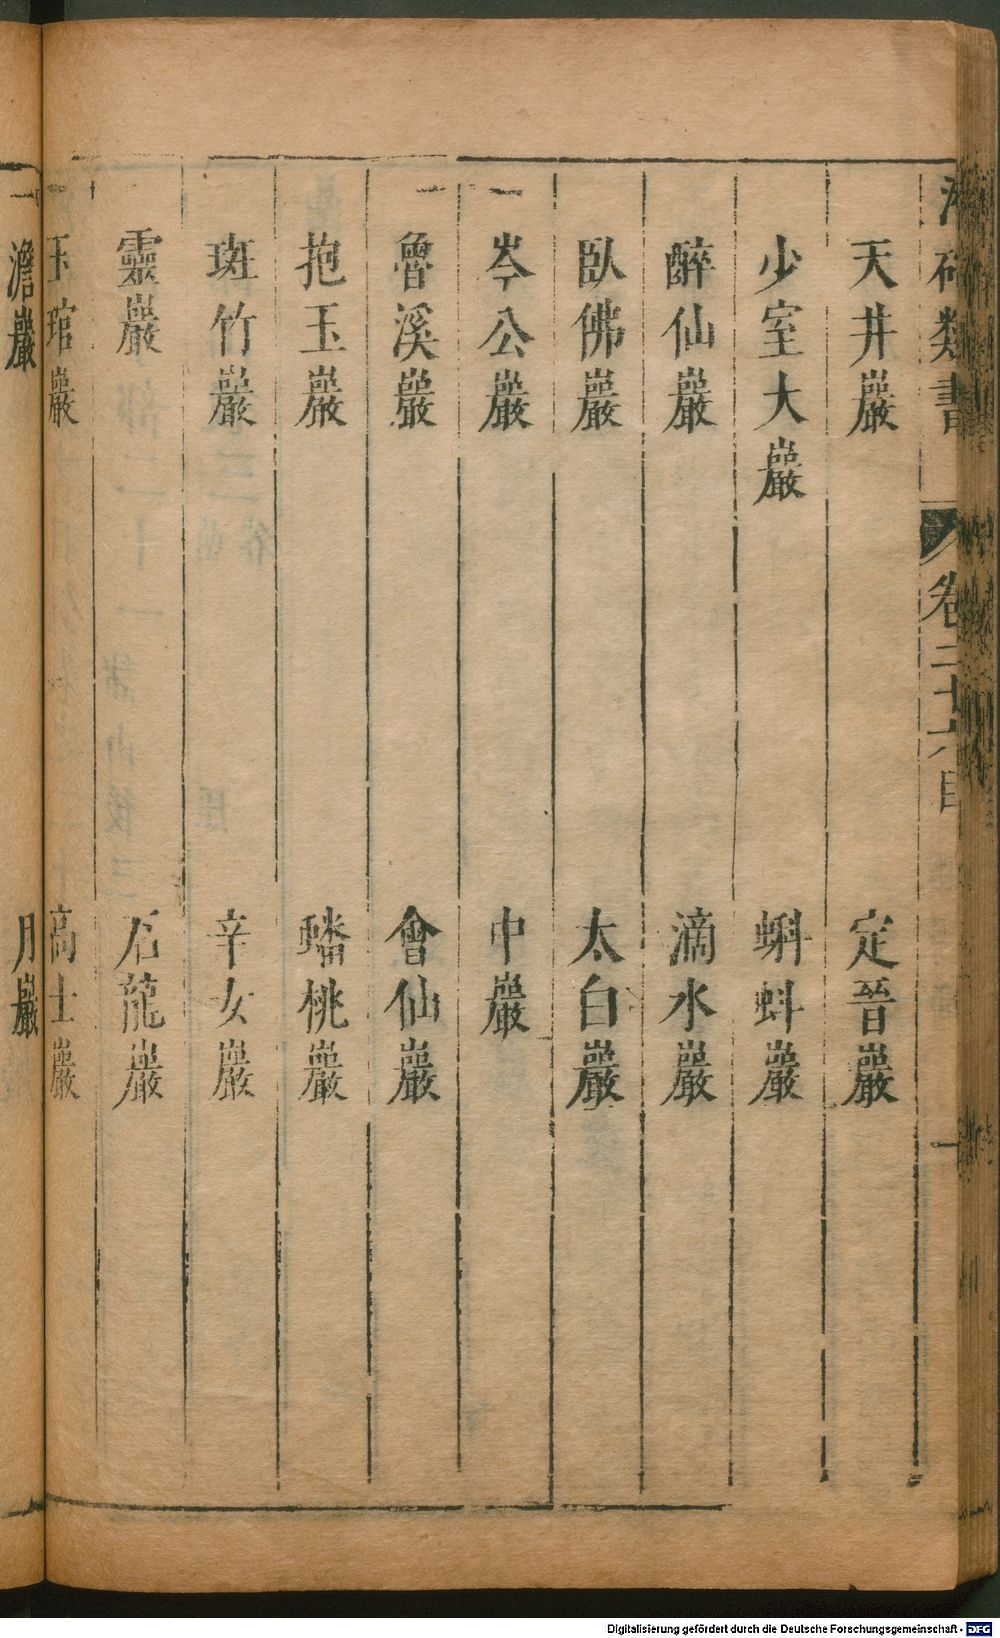 類書 卷二十六目 一
天井巖 定晉巖
少室大巖 蝌蚪巖
醉仙巖 滴水巖
臥佛巖 太白巖
岑公巖 中巖
魯溪巖 會仙巖
抱玉巖 蟠桃巖
斑竹巖 辛女巖
靈巖 石龍巖
玉琯巖 高士巖
澹巖 月巖
Digitalisierung gefördert durch die Deutsche Forschungsgemeinschaft - DFG